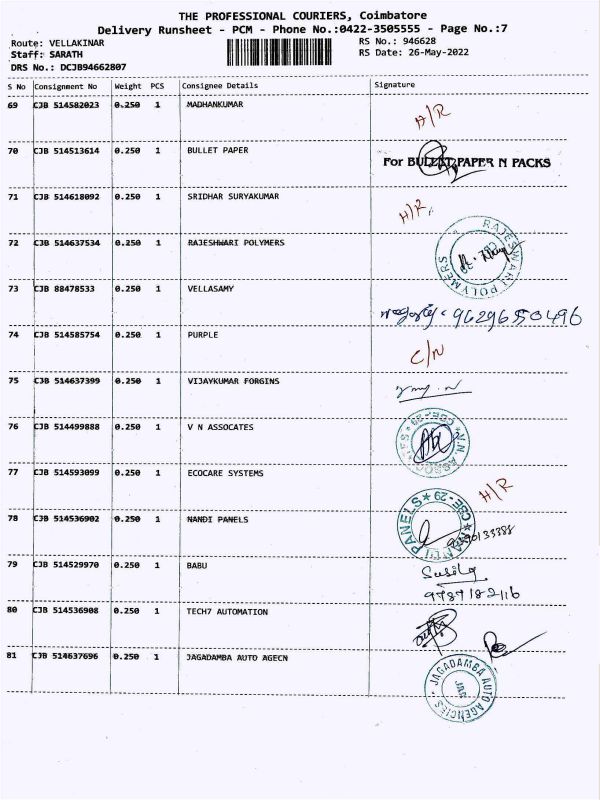 THE PROFESSIONAL COURIERS, Coimbatore
Delivery Runsheet - PCM - Phone No.:0422-3505555 - Page No.:7
Route: VELLAKINAR RS No.: 946628
Staff: SARATH RS Date: 26-May-2022
DRS No.: DCJB94662807
S No Consignment No Weight PCS Consignee Details Signature
69 CJB 514582023 0.250 1 MADHANKUMAR
H/R
70 CJB 514513614 0.250 1 BULLET PAPER
For BULLET PAPER N PACKS
71 CJB 514618092 0.250 1 SRIDHAR SURYAKUMAR
H/R
72 CJB 514637534 0.250 1 RAJESHWARI POLYMERS
RAJESWARI POLYMERS
73 CJB 88478533 0.250 1 VELLASAMY
9629650496
74 CJB 514585754 0.250 1 PURPLE
C/N
75 CJB 514637399 0.250 1 VIJAYKUMAR FORGINS
76 CJB 514499888 0.250 1 V N ASSOCATES
V.N. ASSOCIATES CBE-29
77 CJB 514593099 0.250 1 ECOCARE SYSTEMS
H/R
78 CJB 514536902 0.250 1 NANDI PANELS
NANDI PANELS CBE-29
79 CJB 514529970 0.250 1 BABU
Susila
9787182116
80 CJB 514536908 0.250 1 TECH7 AUTOMATION
81 CJB 514637696 0.250 1 JAGADAMBA AUTO AGECN
JAGADAMBA AUTO AGENCIES